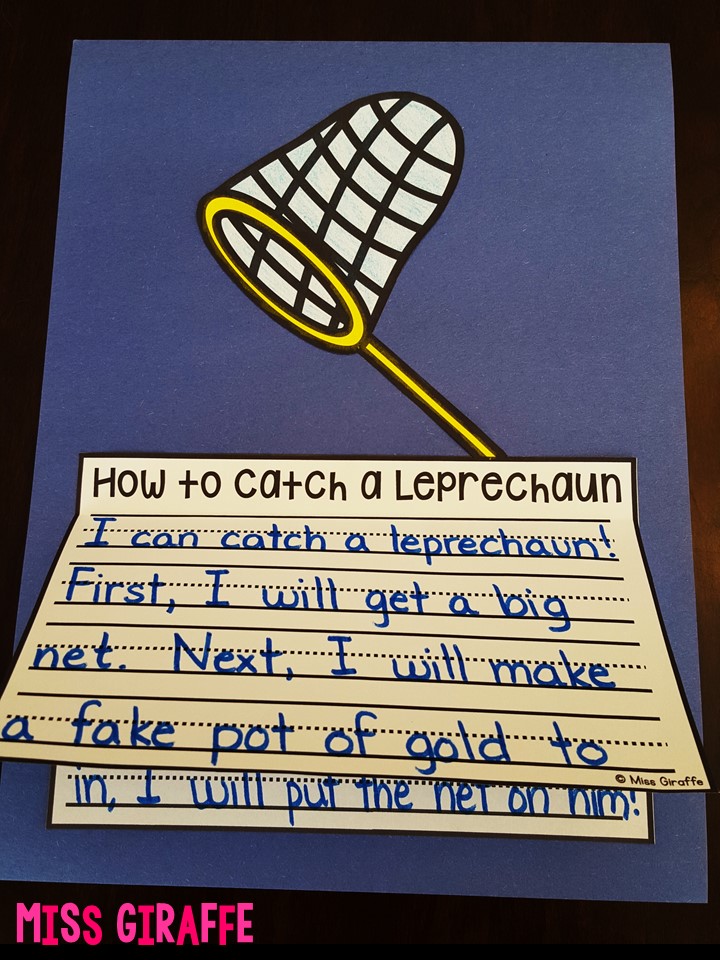 How to Catch a Leprechaun
I can catch a leprechaun!
First, I will get a big
net. Next, I will make
a fake pot of gold to
© Miss Giraffe
in, I will put the net on him!
MISS GIRAFFE